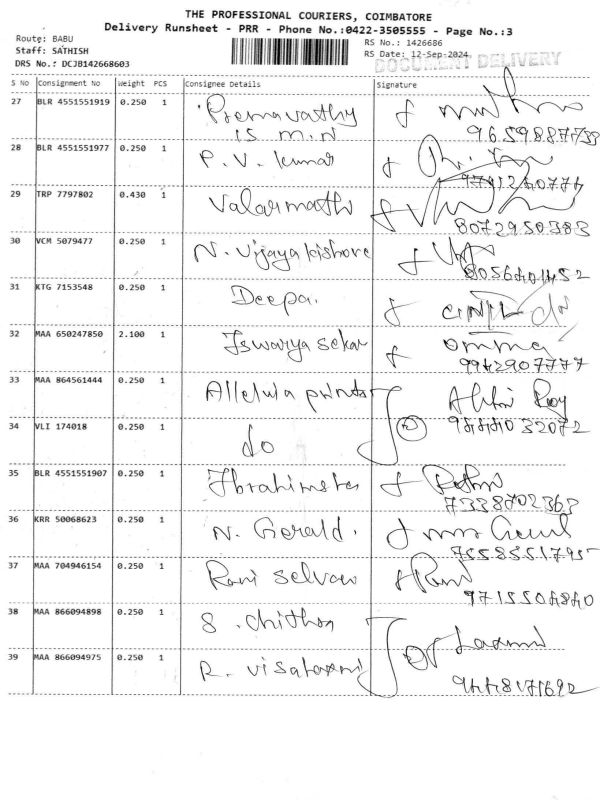 THE PROFESSIONAL COURIERS, COIMBATORE
Delivery Runsheet - PRR - Phone No.:0422-3505555 - Page No.:3
Route: BABU
Staff: SATHISH
DRS No.: DCJB142668603
RS No.: 1426686
RS Date: 12-Sep-2024
DOCUMENT DELIVERY
S No Consignment No Weight PCS Consignee Details Signature
27 BLR 4551551919 0.250 1 Premavathy
15 min
9659887739
28 BLR 4551551977 0.250 1 P. V. Kumar
29 TRP 7797802 0.430 1 Valarmathi
8072950383
30 VCM 5079477 0.250 1 N. Vijaya kishore
8056401452
31 KTG 7153548 0.250 1 Deepa.
32 MAA 650247850 2.100 1 Iswarya sekar
9942907777
33 MAA 864561444 0.250 1 Allelula prints
34 VLI 174018 0.250 1 do
9444032072
35 BLR 4551551907 0.250 1
7338702363
36 KRR 50068623 0.250 1 N. Gerald.
37 MAA 704946154 0.250 1 Rani
9715504840
38 MAA 866094898 0.250 1 S. Chithra
39 MAA 866094975 0.250 1 R.
9448171692